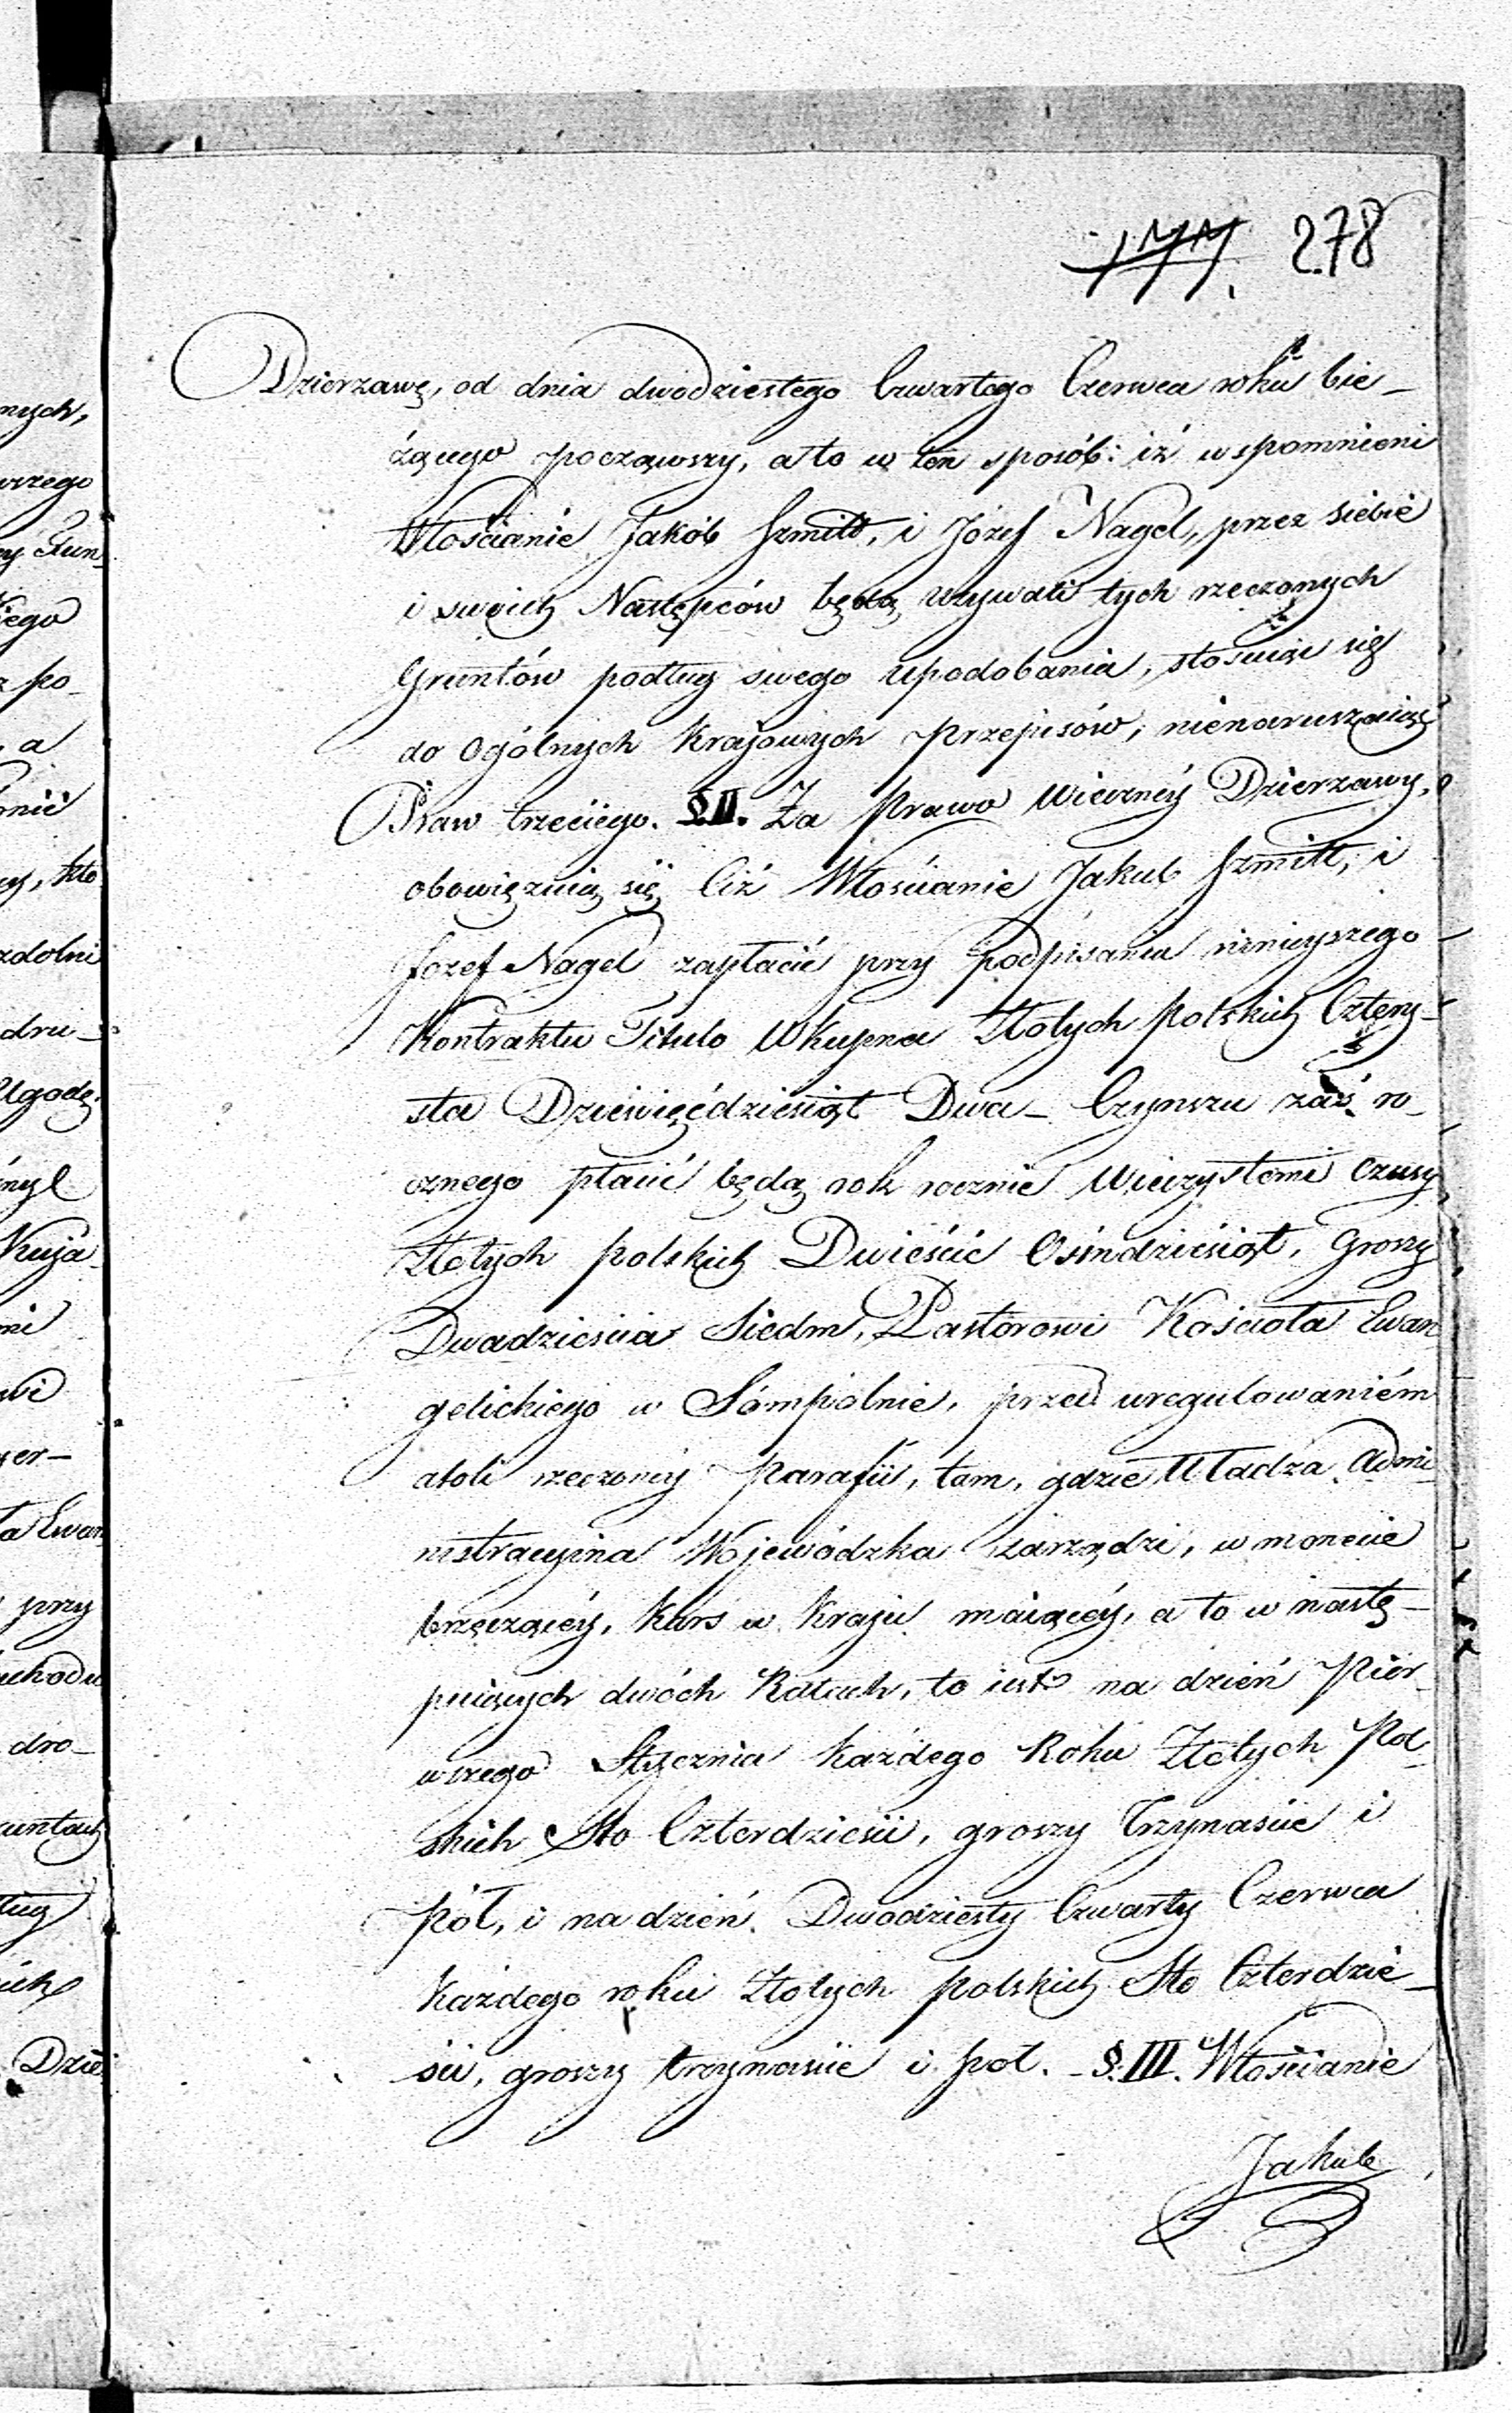 278
Dzierzawę, od dnia dwudziestego Czwartego Czerwca roku bie-
żącego począwszy, a to w ten sposób: iż wspomnieni
Włościanie Jakób Szmitt, i Józef Nagel, przez siebie
i swoich Następców będą używali tych rzeczonych
Gruntów podług swego upodobania, stosuiąc się
do Ogólnych Krajowych przepisów, nienaruszaiąc
Praw trzeciego. §. II. Za prawo wieczney Dzierzawy,
obowięzuią się Ciż Włościanie Jakub Szmitt, i
Jozef Nagel zapłacić przy podpisaniu ninieyszego
Kontraktu Titulo Wkupna Złotych polskich Cztery-
sta Dziewięćdziesiąt Dwa - Czynszu zaś ro-
cznego płacić będą rok rocznie wieczystemi czasy
Złotych polskich Dwieście Ośmdziesiąt, groszy
Dwadzieścia Siedm, Pastorowi Kościoła Ewan
gelickiego w Sompolnie, przed uregulowaniém
atoli rzeczoney Parafii, tam, gdzie Władza Admi
nistracyina Wojewódzka zarządzi, w monecie
brzęczącéy, kurs w Kraju maiącéy, a to w nastę-
puiących dwóch Ratach, to iest na dzień Pier-
wszego Stycznia każdego Roku Złotych Pol-
skich Sto Czterdzieści, groszy Trzynaście i
pół, i na dzień Dwudziesty Czwarty Czerwca
każdego roku Złotych polskich Sto Czterdzie-
ści, groszy trzynaście i pół. - §. III. Włościanie
Jakub